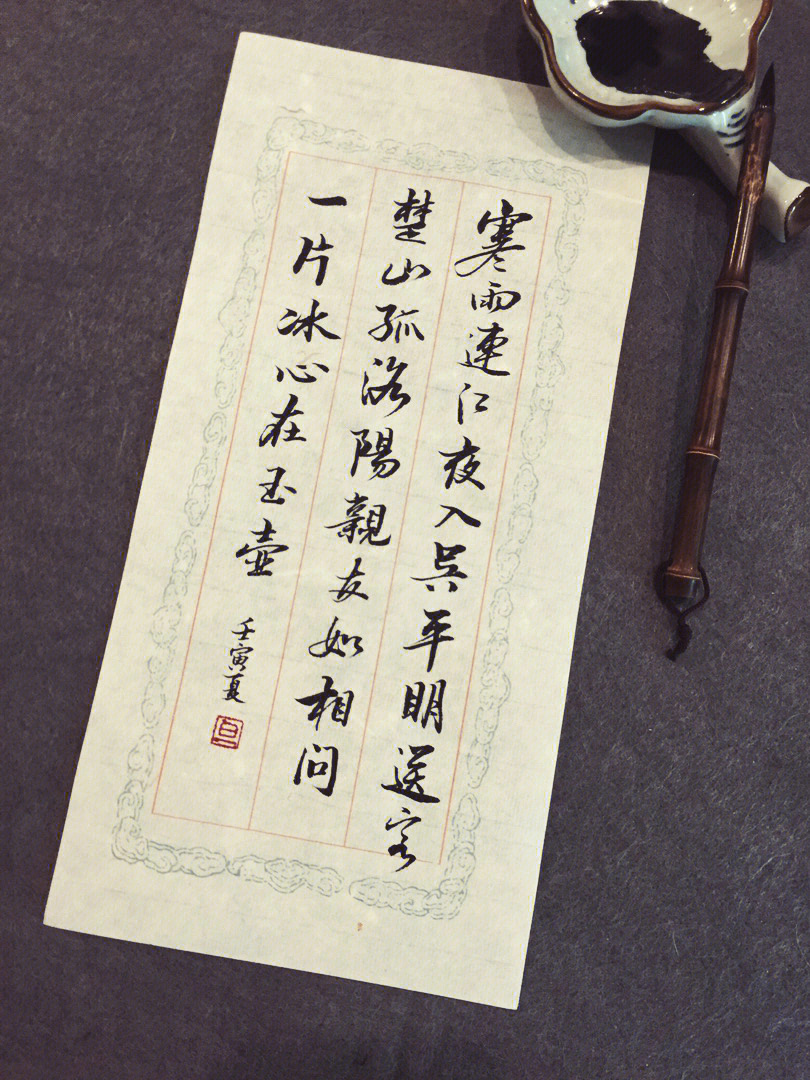 寒雨連江夜入吴平明送客
楚山孤洛陽親友如相问
一片冰心在玉壶
壬寅夏